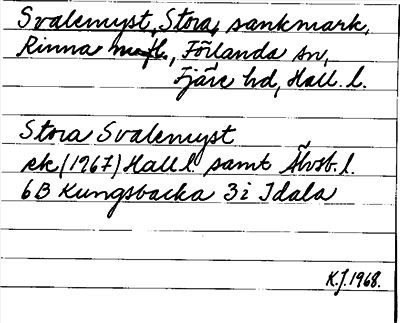 Svalemyst, Stora, sankmark,
Rinna m.fl., Förlanda sn,
Fjäre hd, Hall. l.
Stora Svalemyst
ek (1967) Hall l. samt Älvsb. l.
6B Kungsbacka 3i Idala
K.J. 1968.